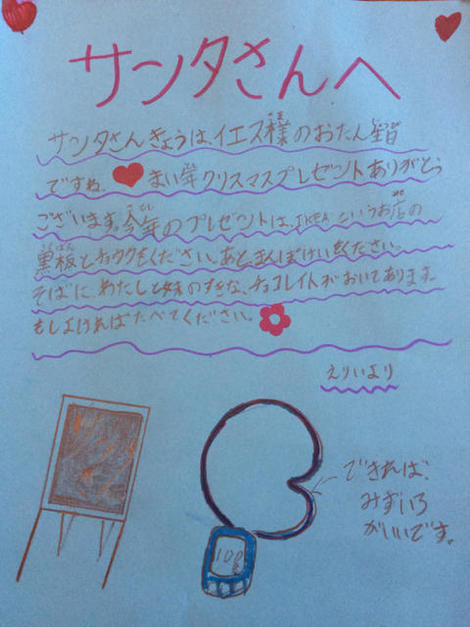 サンタさんへ
サンタさんきょうは、イエス様のおたん生日
ですね。まい年クリスマスプレゼントありがとう
ございます。今年のプレゼントは、IKEAというお店の
黒板とチョウクをください。あと、まんぽけいをください。
そばに、わたしと妹のすきな、チョコレイトがおいてあります。
もしよければたべてください。
えりいより
できれば、
みずいろ
がいいです。
100